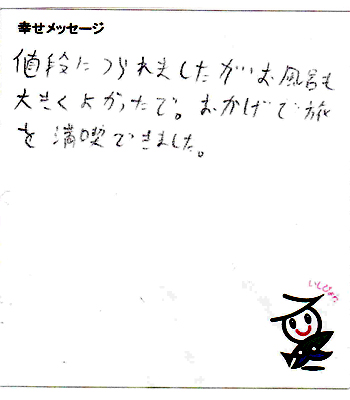 幸せメッセージ
値段につられましたが、お風呂も
大きくよかったで。おかげで旅
を満喫できました。